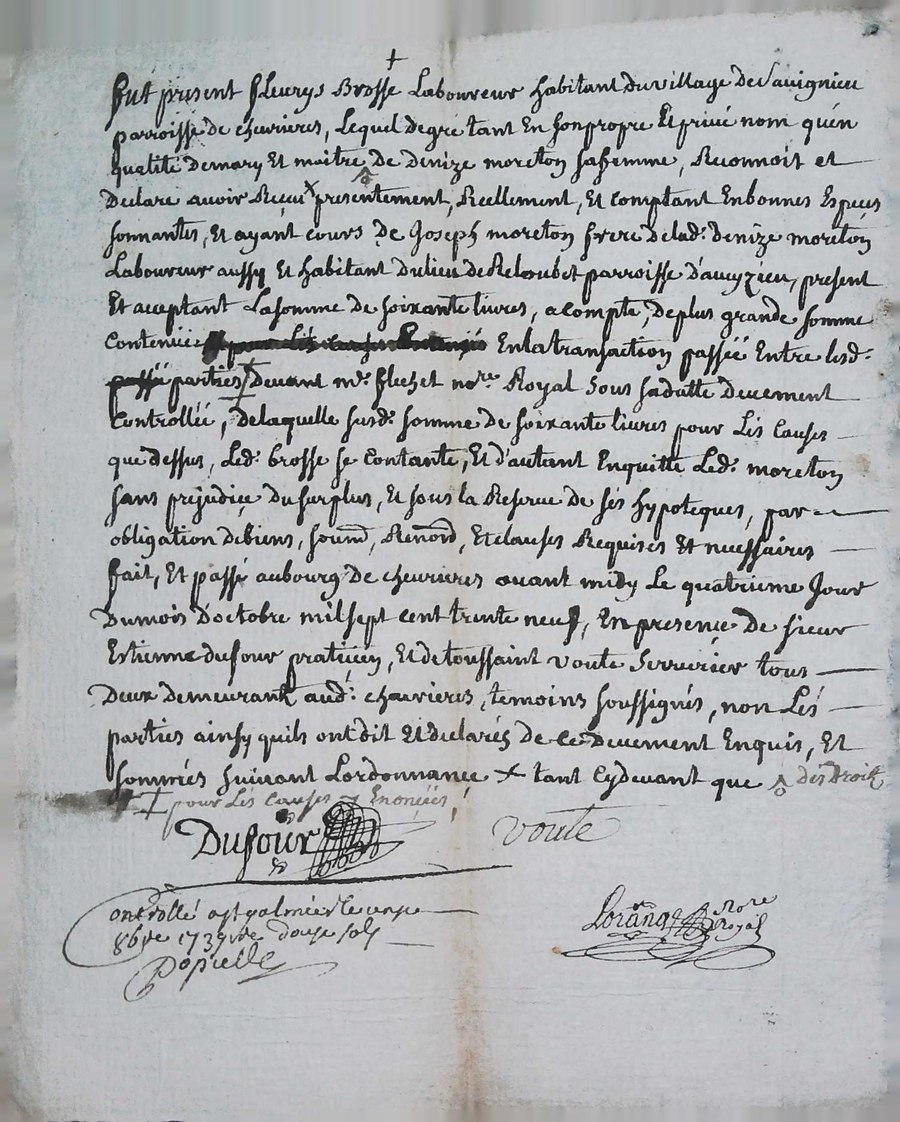 +
fut present fleurys Brosse Laboureur habitant du village de Savignieu
parroisse de chevrieres, Lequel degré tant En son propre Et privé nom qu'en
qualité de mary Et maitre de denize moreton sa femme, Reconnoit et
Declare avoir Reçeu x presentement, Reellement, Et comptant En bonnes Especes
sonnantes, Et ayant cours de Joseph moreton frere de lad.e denize moreton
Laboureur aussy Et habitant du lieu de parroisse d'aveyzieu, present
Et aceptant La somme de soixante livres, a compte, de plus grande somme
Contenüe pour Les causes En la transaction passée Entre lesd.
passé parties devant m.e flechet no.re Royal sous sa datte deuement
Controllée, de laquelle susd. somme de soixante livres pour Les Causes
que dessus, Led. brosse se contante, Et d'autant En quitte Led. moreton
sans prejudice du surplus, Et sous la Reserve de ses hypoteques, par
obligation de biens, soumd, Renond, Et clauses Requises Et necessaires
fait, Et passé au bourg de chevrieres avant midy Le quatrieme Jour
Du mois D'octobre mil sept cent trente neuf, En presence de sieur
Estienne dufour praticien, Et de toussaint voute serrurier tous
Deux demeurant aud. chevrieres, temoins soussignés, non Les
parties ainsy quils ont dit Et declarés de ce deuement Enquis, Et
sommés suivant Lordonnance x tant cy devant que des droits
pour Les causes y Enoncées
Dufour voute
controllé a st galmier le
8bre 1739 douze sols
Lorange no.re
Royal